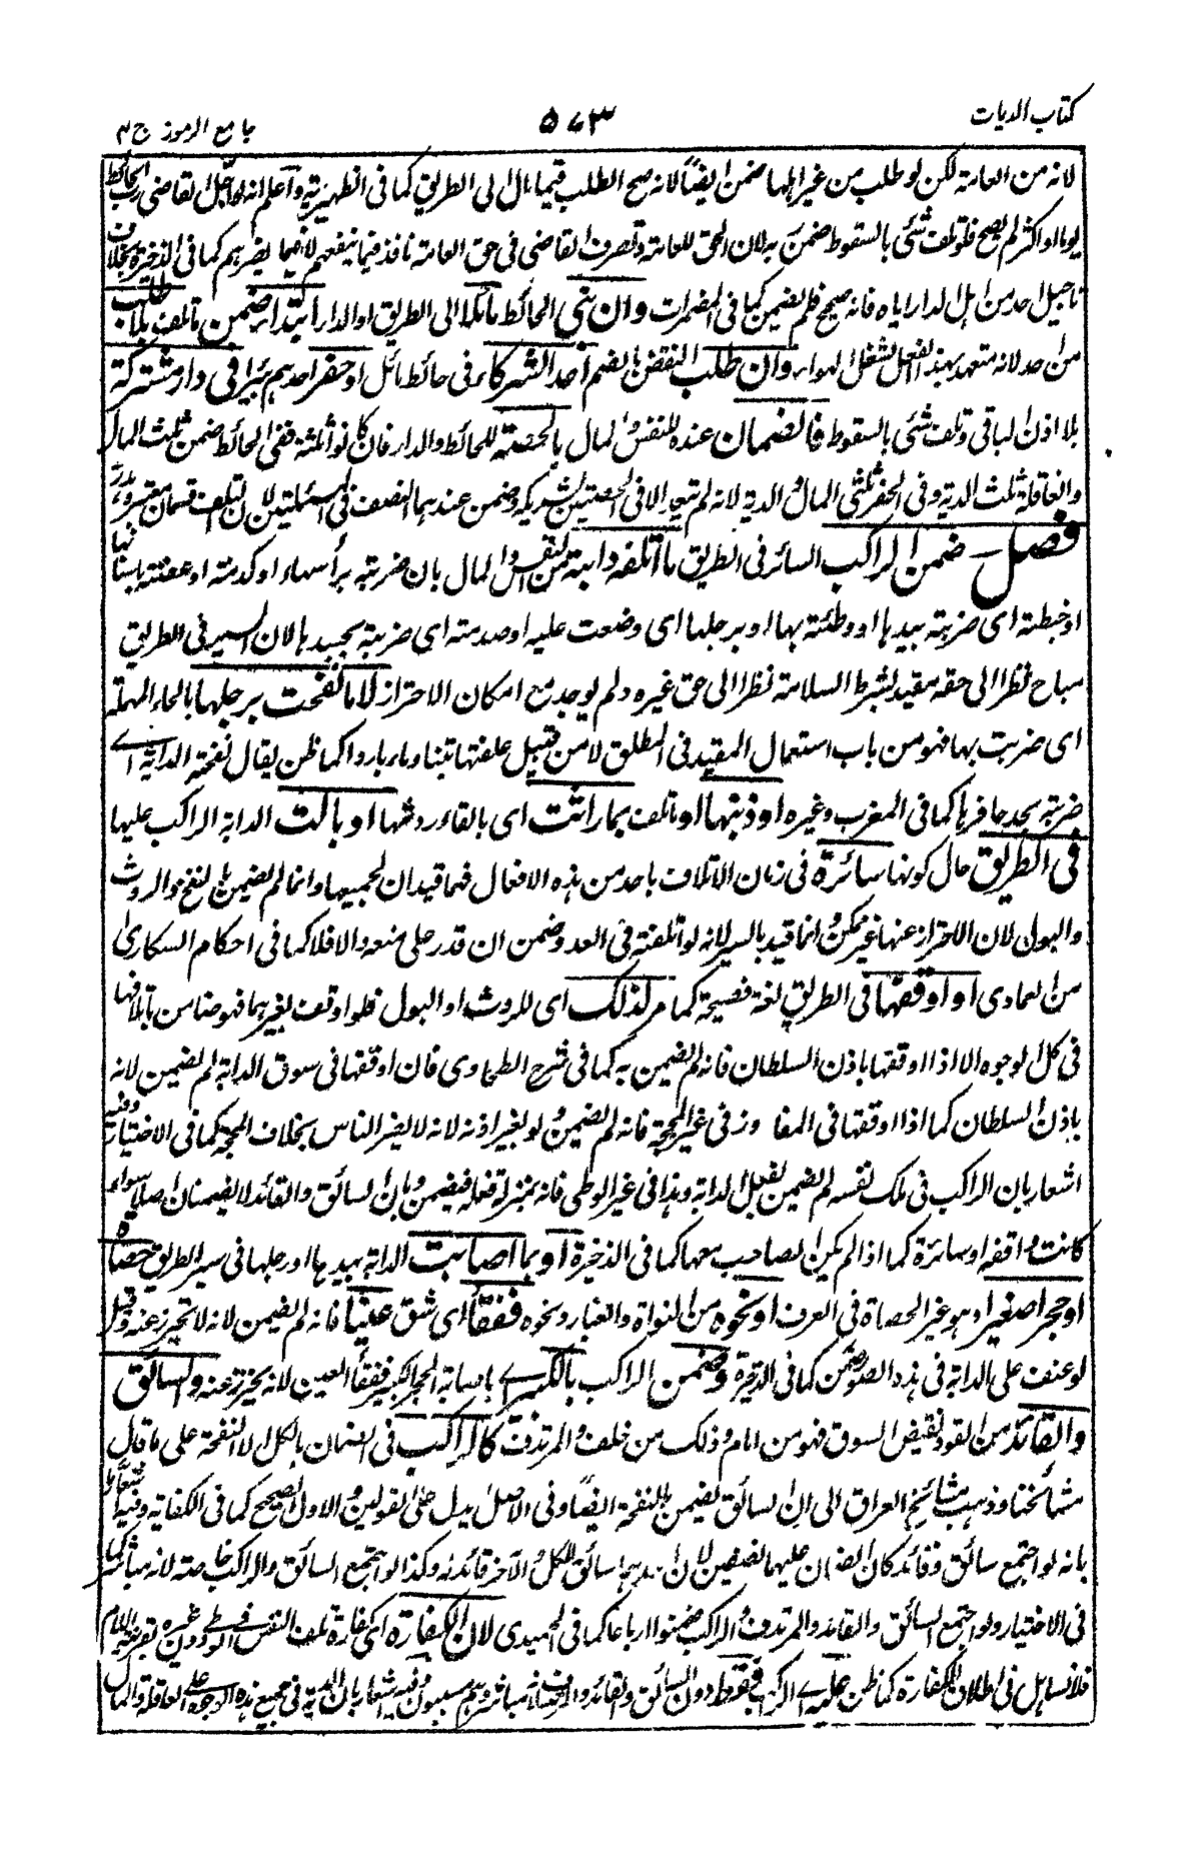 كتاب الديات
٥٧٣
جامع الرموز ج٢
لانه من العامة لكن لو طلب من غير اهلها ضمن ايضًا لانه صح الطلب فيما مال الى الطريق كما فى الظهيرية واعلم انه لو اجل القاضى رب الحائط
يوما او اكثر لم يصح فلو تلف شئ بالسقوط ضمن به لان الحق للعامة وتصرف القاضى فى حق العامة نافذ فيما ينفعهم لا فيما يضرهم كما فى الذخيرة بخلاف
تاجيل احد من اهل الدار اياه فانه صحيح فلم يضمن كما فى المضمرات وان بنى الحائط مائلا الى الطريق او الدار ابتداء ضمن ما تلف به بلا طلب
من احد لانه متعد بهذا الفعل لشغل الهواء وان طلب النقض بالضم احد الشركاء فى حائط مائل او حفر احدهم بئرا فى دار مشتركة
بلا اذن الباقى وتلف شئ بالسقوط فالضمان عنده للنفس والمال بالحصة للحائط والدار فان كانوا ثلثة ففى الحائط ضمن ثلث المال
والعاقلة ثلث الدية وفى الحفر ثلثى المال والدية لانه لم يتعد الا فى الحصتين لشريكه وضمن عندهما النصف فى المسئلتين لان التلف قسمان معتبر وهدر
فصل ضمن الراكب السائر فى الطريق ما اتلفه دابته من النفس والمال بان ضربته برأسها او كدمته او عضته باسنانها
او خبطته اى ضربته بيدها او وطئته بها او برجلها اى وضعت عليه او صدمته اى ضربته بجسدها لان السير فى الطريق
مباح نظرا الى حقه مقيد بشرط السلامة نظرا الى حق غيره ولم يوجد مع امكان الاحتراز لا ما نفحت برجلها بالحاء المهملة
اى ضربت بها فهو من باب استعمال المقيد فى المطلق لا من قبيل علفتها تبنا وماء باردا كما ظن يقال نفحته الدابة اے
ضربته بحد حافرها كما فى المغرب وغيره او ذنبها او ما تلف بما راثت اى بالقاء روثها او بالت الدابة الراكب عليها
فى الطريق حال كونها سائرة فى زمان الاتلاف باحد من هذه الافعال فهما قيدان لجميعها وانما لم يضمن بالنفح والروث
والبول لان الاحتراز عنها غير ممكن وانما قيد بالسير لانه لو اتلفته فى العدو ضمن ان قدر على منعه والا فلا كما فى احكام السكارى
من العمادى او اوقفها فى الطريق لغة فصيحة كما مر لذلك اى للروث او البول فلو اوقف لغيرهما فهو ضامن باتلافها
فى كل الوجوه الا اذا اوقفها باذن السلطان فانه لم يضمن به كما فى شرح الطحاوى فان اوقفها فى سوق الدابة لم يضمن لانه
باذن السلطان كما اذا اوقفها فى المفاوز فى غير المحجة فانه لم يضمن ولو بغير اذنه لانه لا يضر الناس بخلاف المحجة كما فى الاختيار وفيه
اشعار بان الراكب فى ملك نفسه لم يضمن بفعل الدابة وهذا فى غير الوطى فانه بمنزلة فعله فيضمن وبان السائق والقائد لا يضمنان اصلا سواء
كانت واقفة او سائرة كما اذا لم يكن لصاحب معها كما فى الذخيرة او بما اصابت الدابة بيدها او رجلها فى سير الطريق حصاة
او حجرا صغيرا وهو غير الحصاة فى العرف او نحوه من النواة والغبار ونحوه ففقأ اى شق عينا فانه لم يضمن لانه لا تحرز عنه وقيل
لو عنف على الدابة فى هذه الصور ضمن كما فى الذخيرة وضمن الراكب بالكبير اے باصابة الحجر الكبير ففقأ العين لانه يحترز عنه والسائق
والقائد من القود نقيض السوق فهو من امام وذلك من خلف والمرتدف كالراكب فى الضمان بالكل الا النفحة على ما قال
مشائخنا وذهب مشائخ العراق الى ان السائق يضمن بالنفحة ايضًا وفى الاصل يدل على القولين والاول الصحيح كما فى الكفاية وفيه اشعار
بانه لو اجتمع سائق وقائد كان الضمان عليهما نصفين لان احدهما سائق للكل والآخر قائد له وكذا لو اجتمع السائق والراكب خاصة لانه مباشر كما
فى الاختيار ولو اجتمع السائق والقائد والمرتدف والراكب ضمنوا ارباعا كما فى الحميدى لان الكفارة اى كفارة تلف النفس فى الوطى دون غيره بقرينة اللام
فلا تساهل فى اطلاق الكفارة كما ظن عليه اے الراكب فقط دون السائق والقائد والمرتدف لانه مباشر وهم مسببون وفيه اشعار بان الدية فى جميع هذه الوجوه على العاقلة والمال